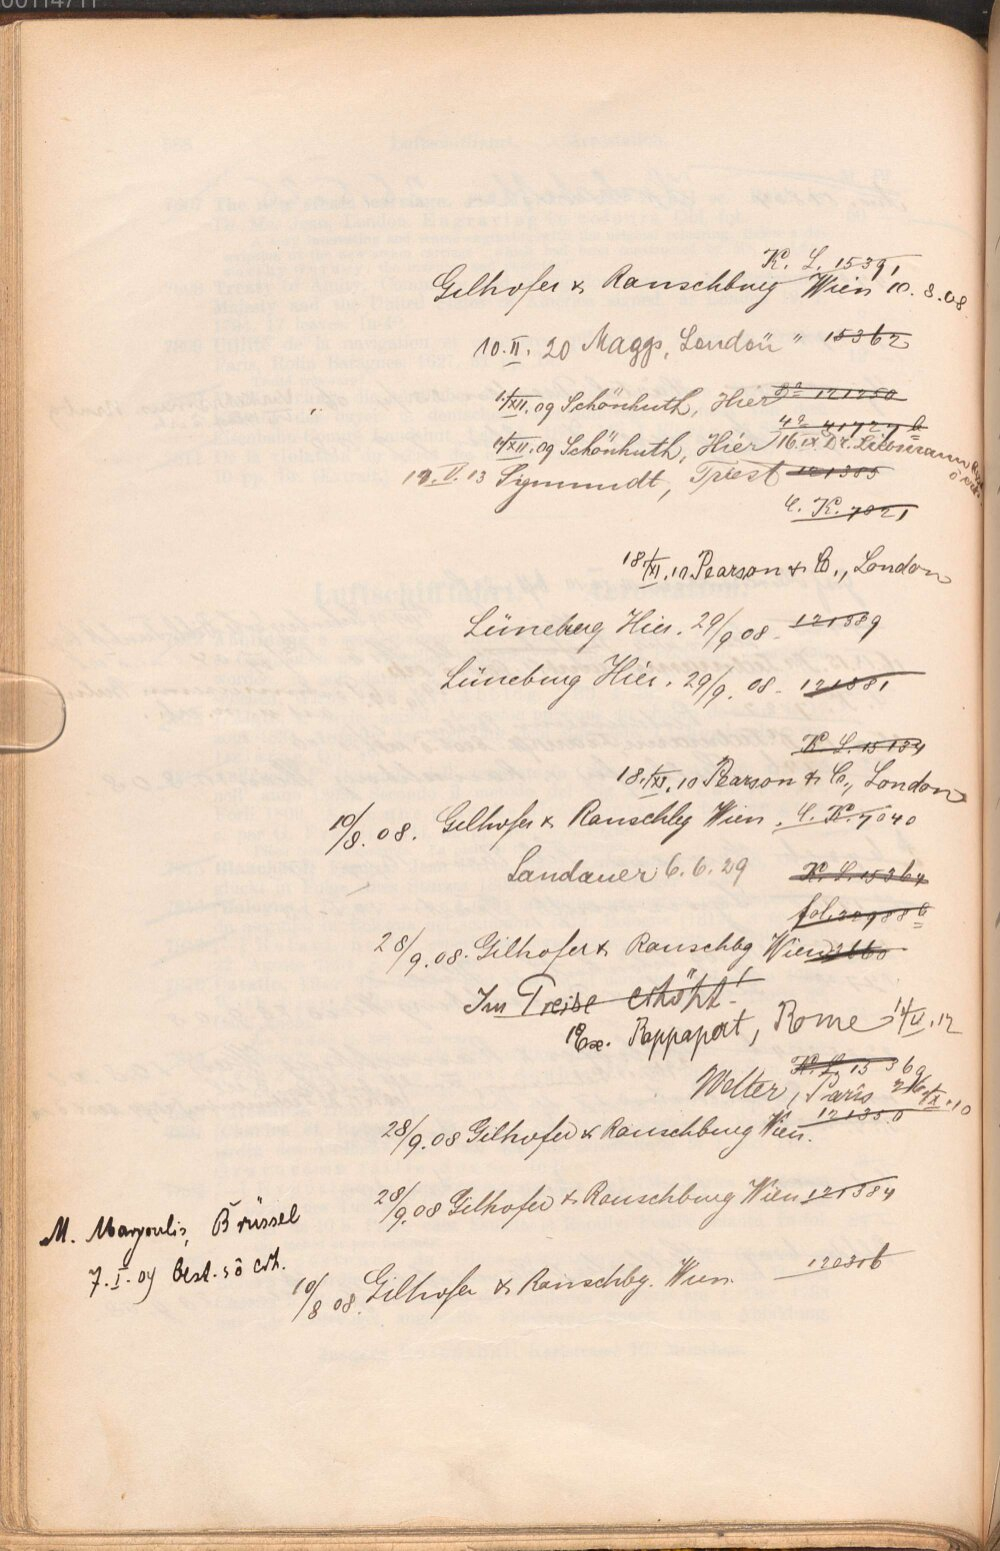 K. L. 15391
Gilhofer & Ranschburg Wien 10.8.08
10.II.20 Maggs, London " 15362
2° 121250
1/XII.09 Schönhuth, Hier
4° 41727 b
1/XII.09 Schönhuth, Hier 16.IX Dr. Liebmann
12.V.13 Sigmundt, Triest 121385
4. K. 7021
18/XI.10 Pearson & Co., London
Lüneburg Hier. 29/9 08. 121389
Lüneburg Hier. 29/9. 08. 121381
K. L. 15184
18./XI.10 Pearson & Co., London
10/8. 08. Gilhofer & Ranschbg Wien. 4. K. 7040
Landauer 6.6.29 K. L. 15364
fol. 22988 b
28/9.08. Gilhofer & Ranschbg Wien
Im Preise erhöht!
Rappaport, Rome 14/V.12
K. L. 15369
Welter, Paris 26/IX.10
121350
28/9.08 Gilhofer & Ranschburg Wien.
28/9.08 Gilhofer & Ranschburg Wien 121384
M. Margoulis, Brüssel
7.I.09 best. s o erh.
10/8 08. Gilhofer & Ranschbg. Wien. 120306